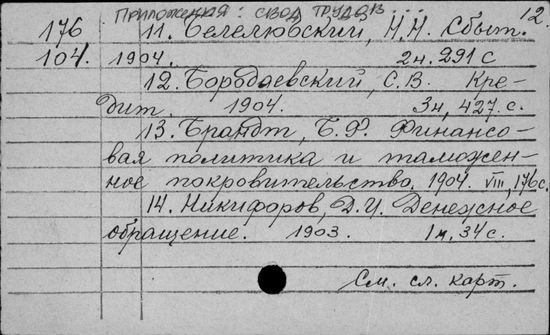 Приложения: свод трудов ... 12.
176 11. Белелюбский, Н.Н. Сбыт.
104. 1904. 2н. 291 с
12. Бородаевский, С.В. Кре-
дит. 1904. 3н, 427 с.
13. Брандт, Б.Ф. Финансо-
вая политика и таможен-
ное покровительство. 1904. VIII, 176 с.
14. Никифоров, Д.И. Денежное
обращение. 1903. 1н, 34 с.
См. сл. карт.